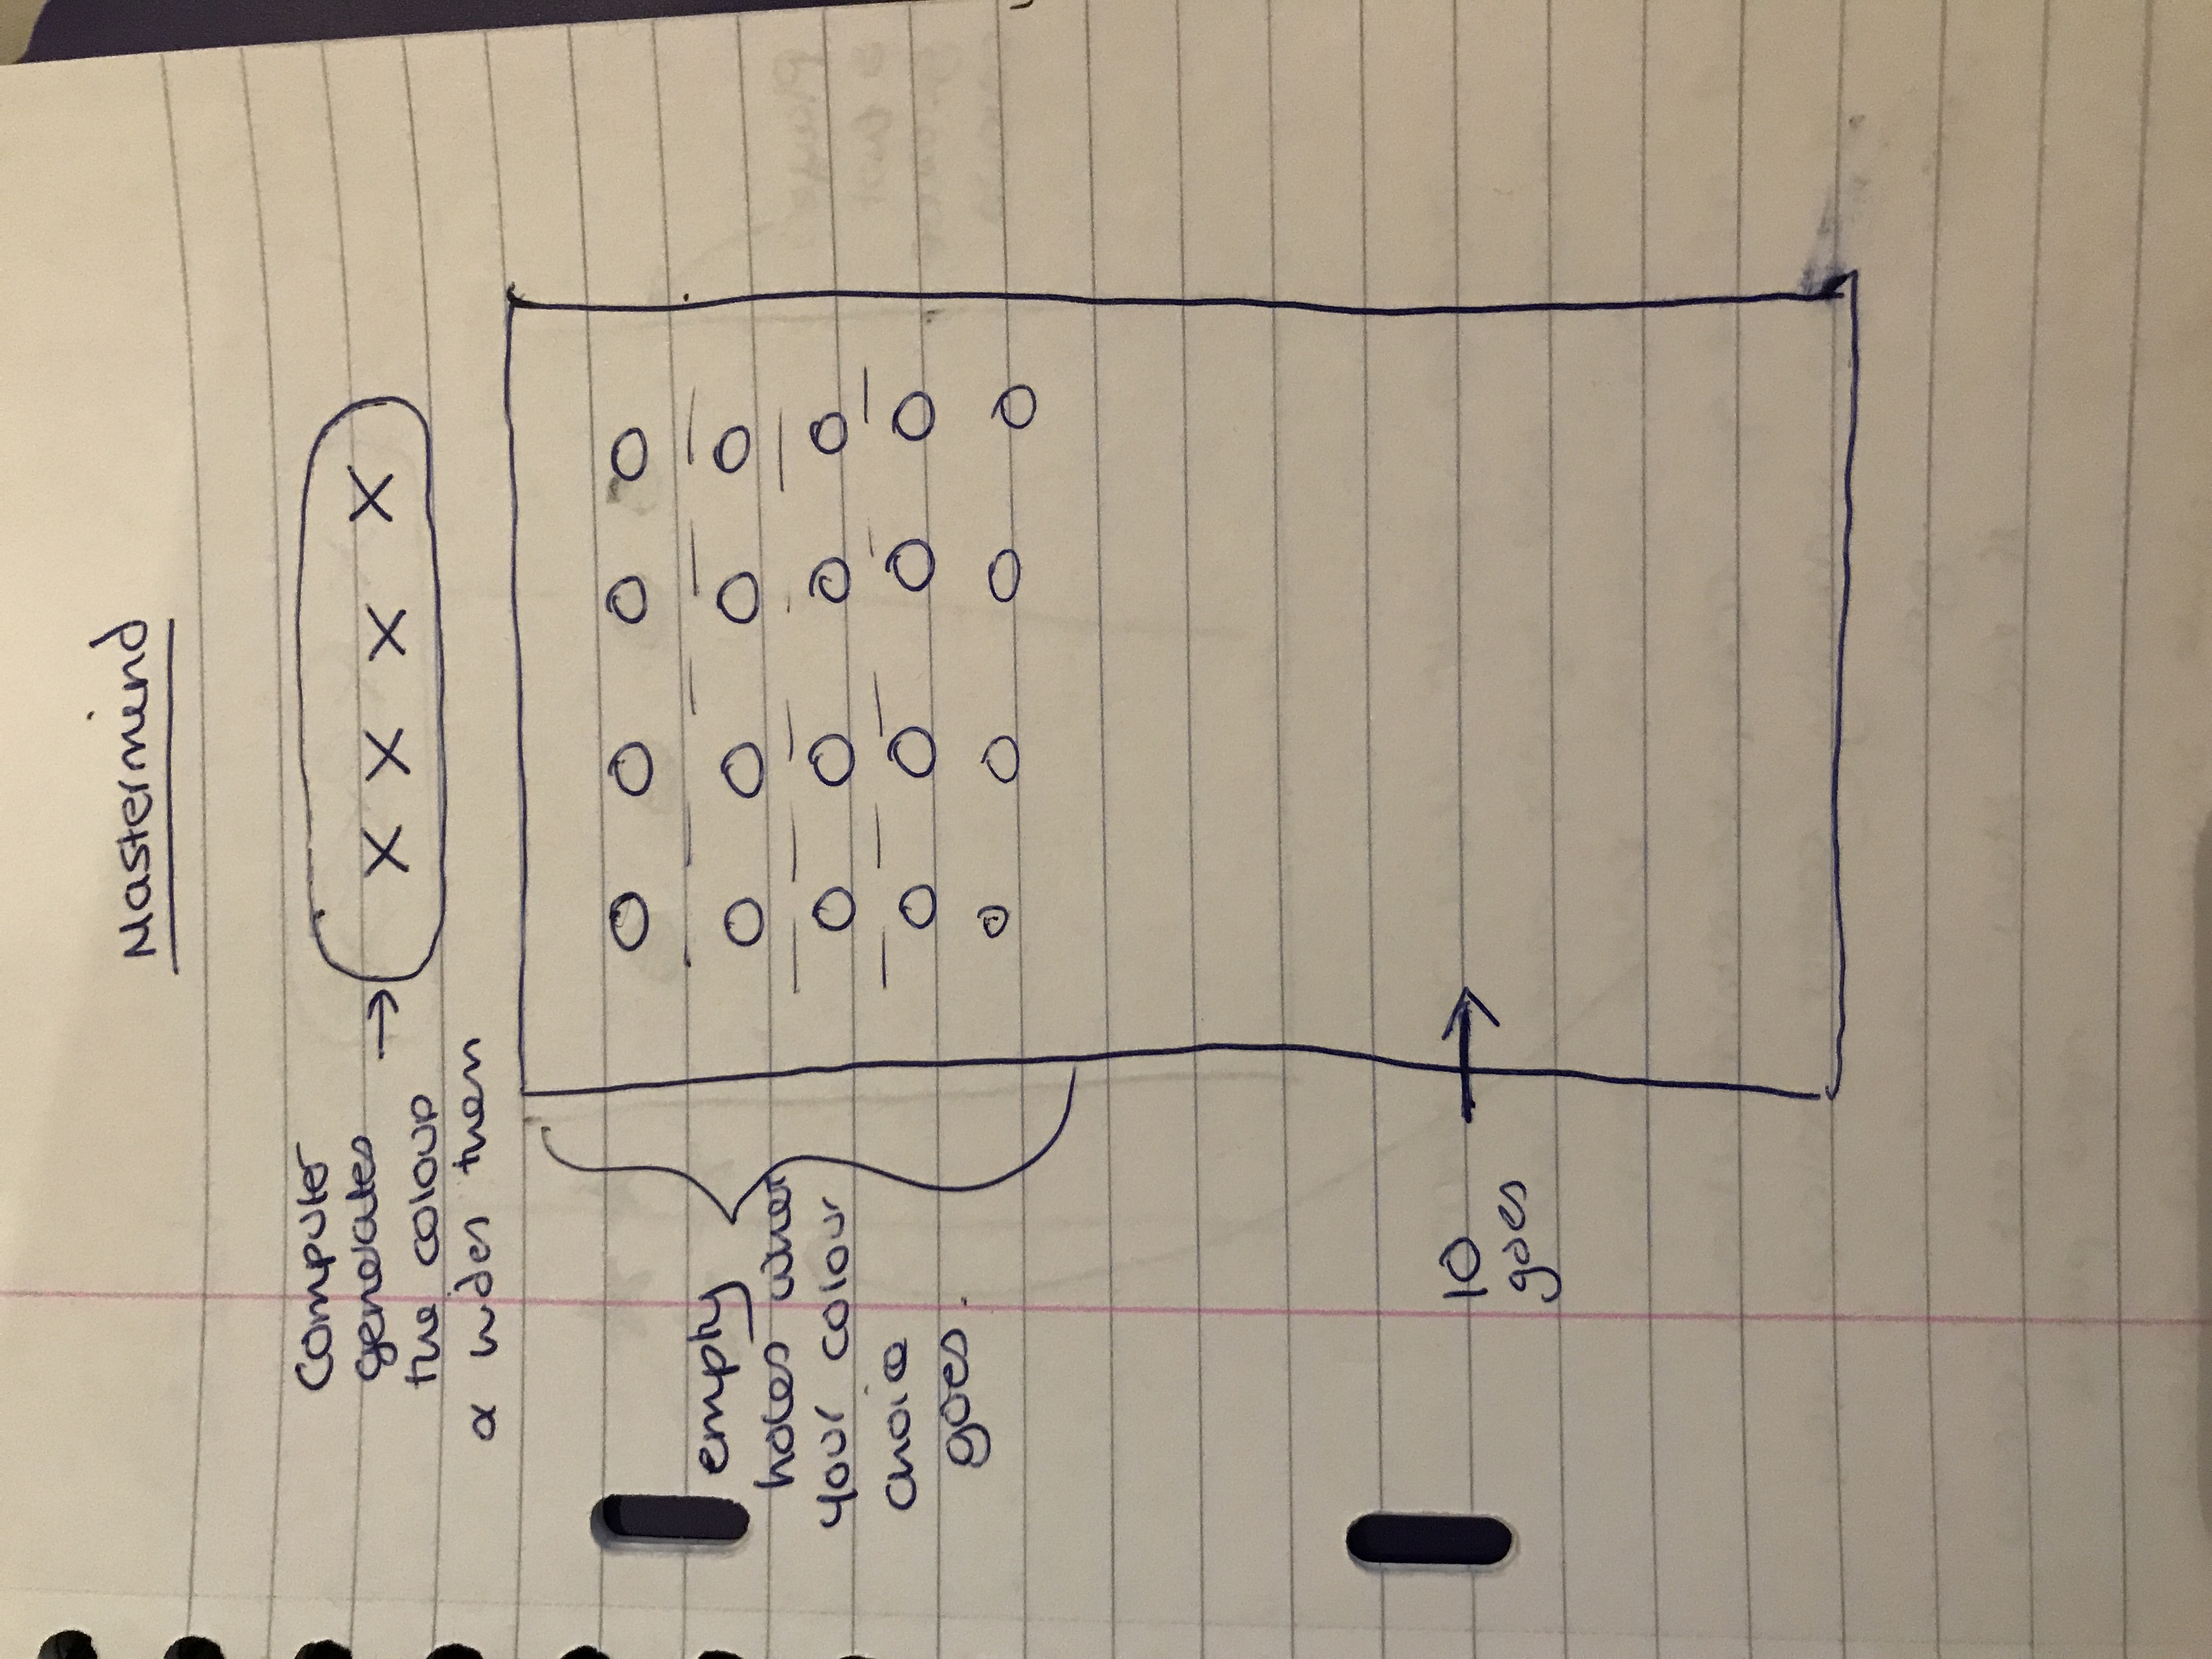 Mastermind
Computer
generates
the colour
& hides them
X X X X
empty
holes where
your colour
choice
goes.
10
goes